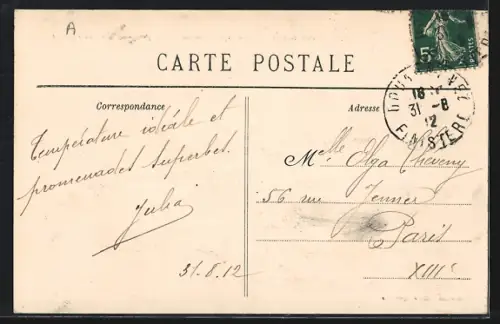 A
CARTE POSTALE
Correspondance
Adresse
5c
18
31 -8
12
FINISTERE
Température idéale et
promenades superbes.
Julia
31.8.12
Melle Olga Cheveny
56 rue Jenner
Paris
XIIIe